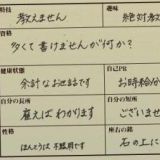 特技
趣味
教えません
絶対教
資格
多くて書けませんが何か?
健康状態
自己PR
余計なお世話です
お時給分
自分の長所
自分の
雇えばわかります
ございませ
性格
座右の銘
ほんとうは不器用です
石の上に